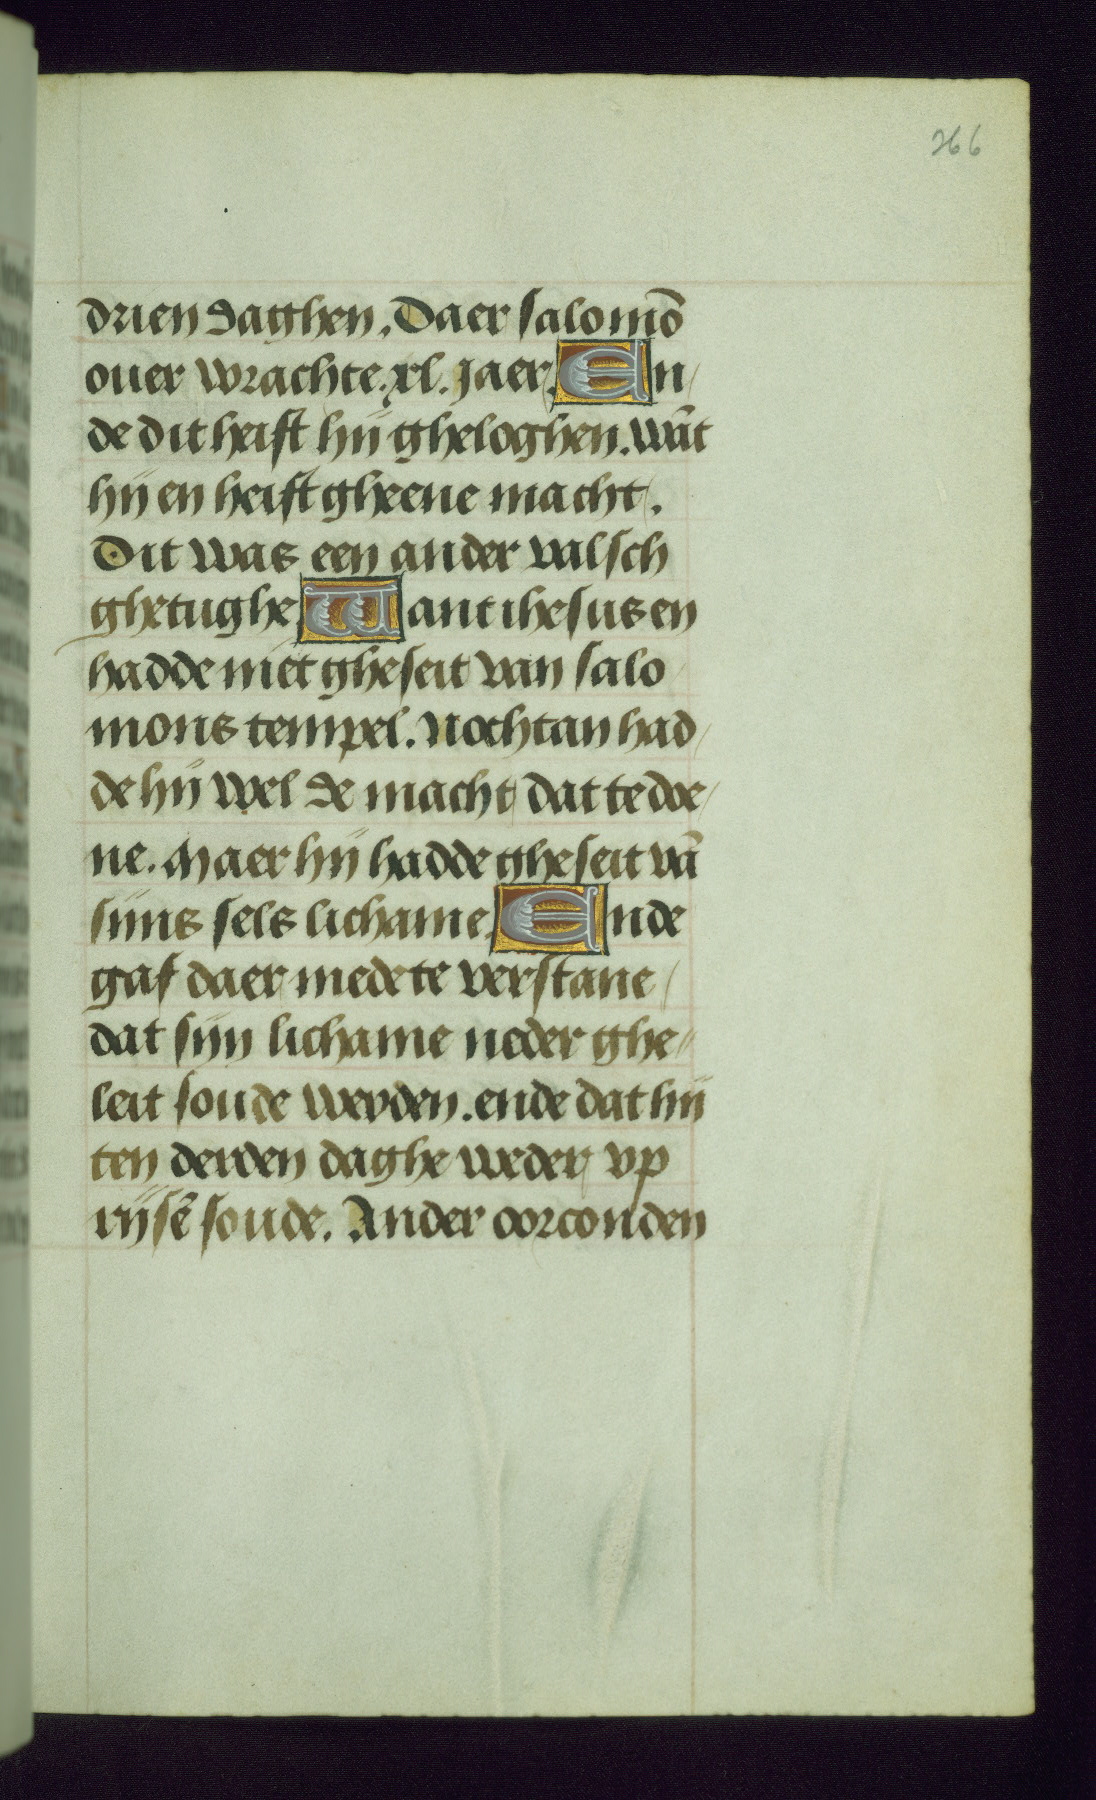 266
drien daghen. Daer salomō
ouer wrachte. xl. Jaer. En/
de dit heift hij gheloghen. wāt
hij en heift gheene macht.
Dit was een ander valsch
ghetughe. Want ihesus en
hadde niet gheseit van salo
mons tempel. Nochtan had/
de hij wel de macht dat te doe/
ne. Maer hij hadde gheseit vā
sijns sels lichame. Ende
gaf daer mede te verstane/
dat sijn lichame neder ghe//
leit soude werden. ende dat hij
ten derden daghe weder vp
rijsē soude. Ander oorconden